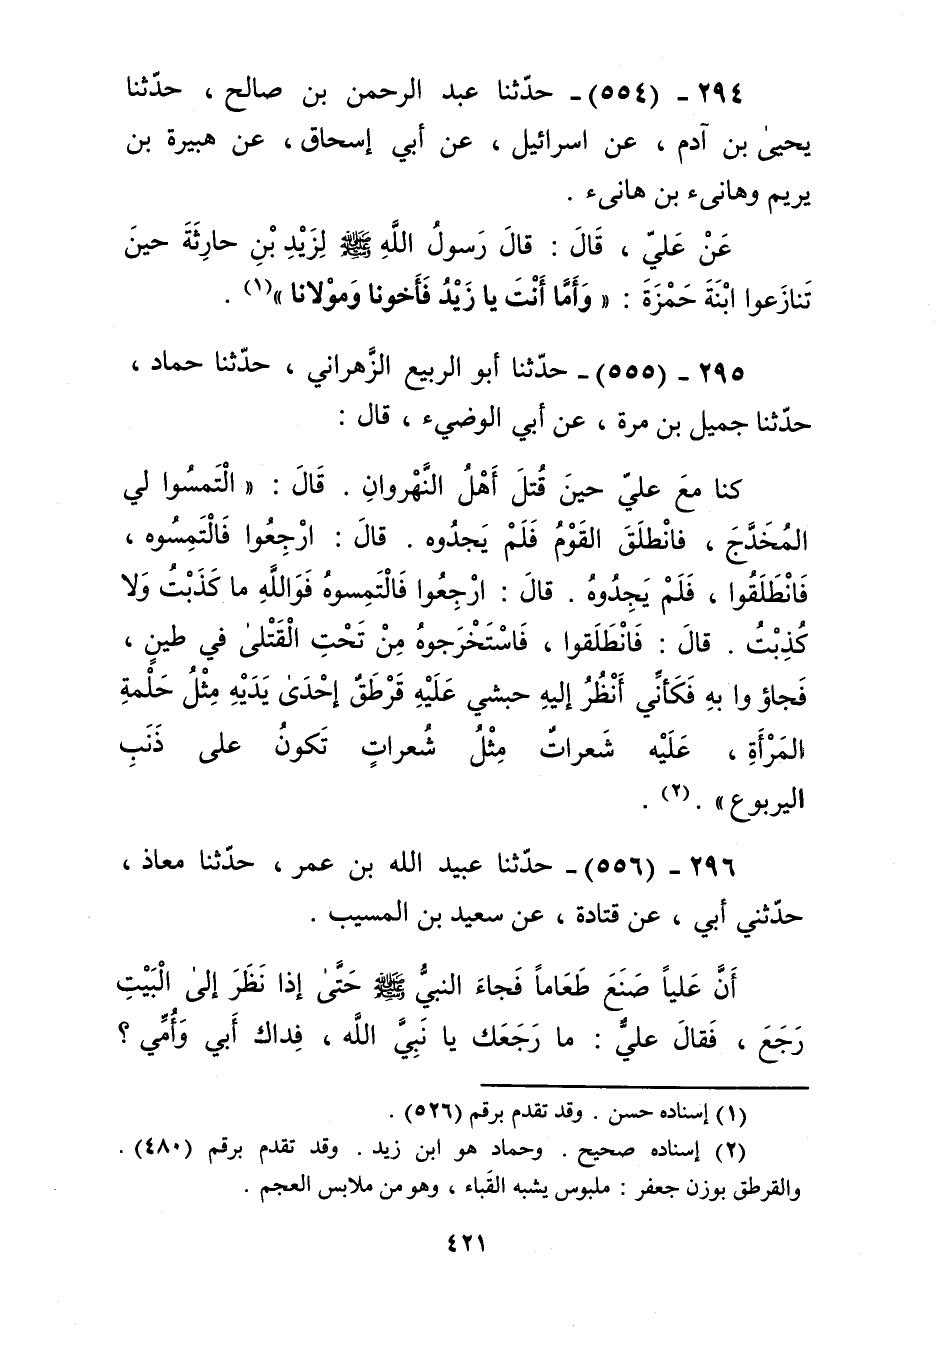 ٢٩٤ ـ (٥٥٤) ـ حدّثنا عبد الرحمن بن صالح ، حدّثنا
يحيىٰ بن آدم ، عن اسرائيل ، عن أبي إسحاق ، عن هبيرة بن
يريم وهانىء بن هانىء .
عَنْ عَليّ ، قَالَ : قالَ رَسولُ اللَّهِ ﷺ لِزَيْدِ بْنِ حارِثَةَ حينَ
تَنازَعوا ابْنَةَ حَمْزَةَ : « وَأَمَّا أَنْتَ يا زَيْدُ فَأَخونا وَمَوْلانا »(١) .
٢٩٥ ـ (٥٥٥) ـ حدّثنا أبو الربيع الزَّهراني ، حدّثنا حماد ،
حدّثنا جميل بن مرة ، عن أبي الوضيء ، قال :
كنا معَ عليّ حينَ قُتلَ أَهْلُ النَّهْروانِ . قَالَ : « الْتَمسُوا لي
المُخَدَّجَ ، فانْطلَقَ القَوْمُ فَلَمْ يَجدُوه . قالَ : ارْجِعُوا فَالْتَمِسُوه ،
فَانْطَلَقُوا ، فَلَمْ يَجِدُوهُ . قالَ : ارْجِعُوا فَالْتَمِسوهُ فَوَاللَّهِ ما كَذَبْتُ وَلا
كُذِبْتُ . قالَ : فَانْطَلَقوا ، فَاسْتَخْرَجوهُ مِنْ تَحْتِ الْقَتْلىٰ في طينٍ ،
فَجاؤ وا بهِ فَكَأنِّي أَنْظُرُ إليهِ حبشي عَلَيْهِ قَرْطَقٌ إحْدَىٰ يَدَيْهِ مِثْلُ حَلْمةِ
المَرْأَةِ ، عَلَيْه شَعراتٌ مِثْلُ شُعراتٍ تَكونُ على ذَنَبِ
اليربوع » .(٢) .
٢٩٦ ـ (٥٥٦) ـ حدّثنا عبيد الله بن عمر ، حدّثنا معاذ ،
حدّثني أبي ، عن قتادة ، عن سعيد بن المسيب .
أَنَّ عَلياً صَنَعَ طَعَاماً فَجاءَ النبيُّ ﷺ حَتَّىٰ إذا نَظَرَ إلىٰ الْبَيْتِ
رَجَعَ ، فَقالَ عليٌّ : ما رَجَعَك يا نَبِيَّ اللَّه ، فِداك أَبي وَأُمِّي ؟
(١) إسناده حسن . وقد تقدم برقم (٥٢٦) .
(٢) إسناده صحيح . وحماد هو ابن زيد . وقد تقدم برقم (٤٨٠) .
والقرطق بوزن جعفر : ملبوس يشبه القَباء ، وهو من ملابس العجم .
٤٢١